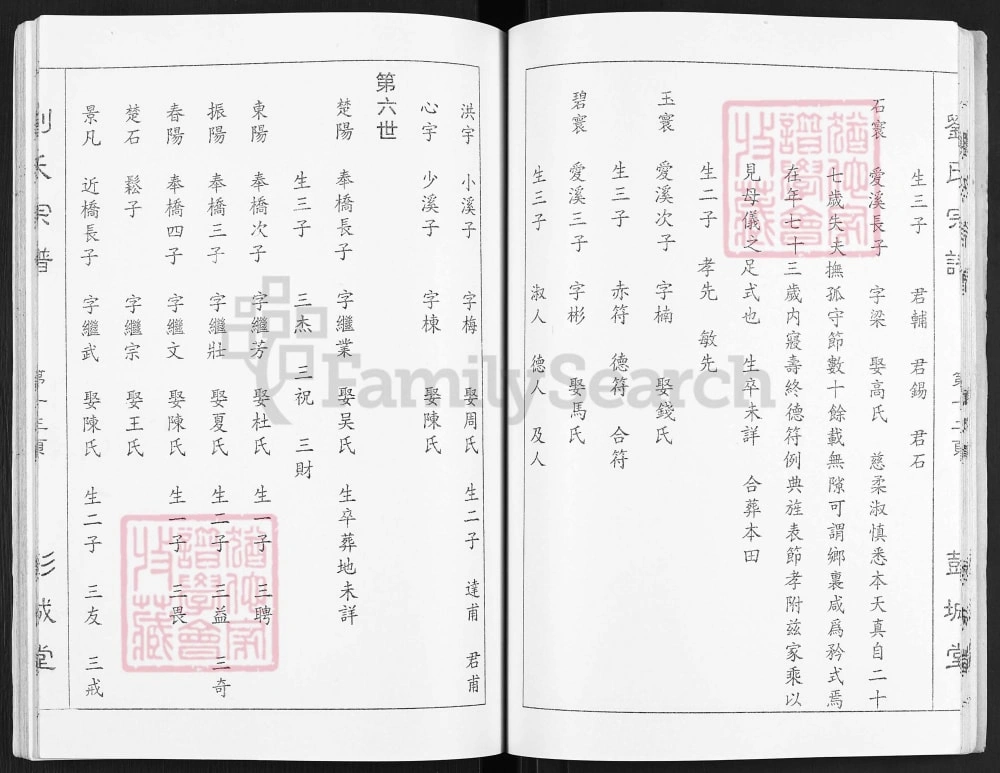 劉氏宗譜
彭城堂
生三子 君輔 君錫 君石
石寰 愛溪長子 字梁 娶高氏 慈柔淑慎悉本天真自二十
七歲失夫撫孤守節數十餘載無隙可謂鄉裏咸爲矜式焉
在年七十三歲内寢壽終德符例典旌表節孝附兹家乘以
見母儀之足式也 生卒未詳 合葬本田
生二子 孝先 敏先
玉寰 愛溪次子 字楠 娶錢氏
生三子 赤符 德符 合符
碧寰 愛溪三子 字彬 娶馬氏
生三子 淑人 德人 及人
洪宇 小溪子 字梅 娶周氏 生二子 達甫 君甫
心宇 少溪子 字棟 娶陳氏
第六世
楚陽 奉橋長子 字繼業 娶吴氏 生卒葬地未詳
生三子 三杰 三祝 三財
東陽 奉橋次子 字繼芳 娶杜氏 生一子 三聘
振陽 奉橋三子 字繼壯 娶夏氏 生二子 三益 三奇
春陽 奉橋四子 字繼文 娶陳氏 生一子 三畏
楚石 鬆子 字繼宗 娶王氏
景凡 近橋長子 字繼武 娶陳氏 生二子 三友 三戒
劉氏宗譜
彭城堂
FamilySearch